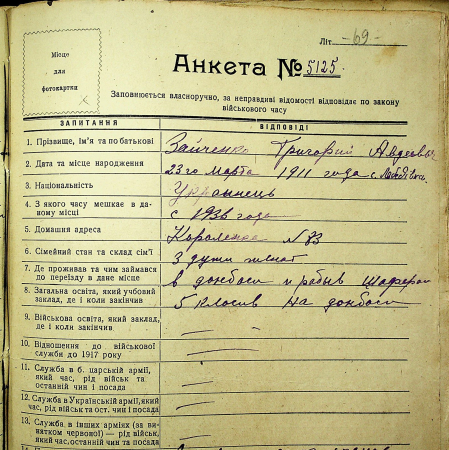 Літ. -69-
Місце
для
фотокартки
Анкета № 5125.
Заповнюється власноручно, за неправдиві відомості відповідає по закону
військового часу
ЗАПИТАННЯ
ВІДПОВІДІ
1. Прізвище, ім'я та по батькові
Зайченко Григорий Авдеевич
2. Дата та місце народження
23го марта 1911 года с.
3. Національність
Украинець
4. З якого часу мешкає в да-
ному місці
с 1936 года
5. Домашня адреса
Короленка №83
6. Сімейний стан та склад сім'ї
3 души
7. Де проживав та чим займався
до переїзду в дане місце
в донбаси и робыв Шафером
8. Загальна освіта, який учбовий
заклад, де і коли закінчив
5 класив на донбаси
9. Військова освіта, який заклад,
де і коли закінчив
10. Відношення до військової
служби до 1917 року
11. Служба в б. царській армії,
який час, рід військ та
останній чин і посада
12. Служба в Українській армії, який
час, рід військ та ост. чин і посада
13. Служба в інших арміях (за ви-
нятком червоної) — рід військ,
який час, останній чин та посада